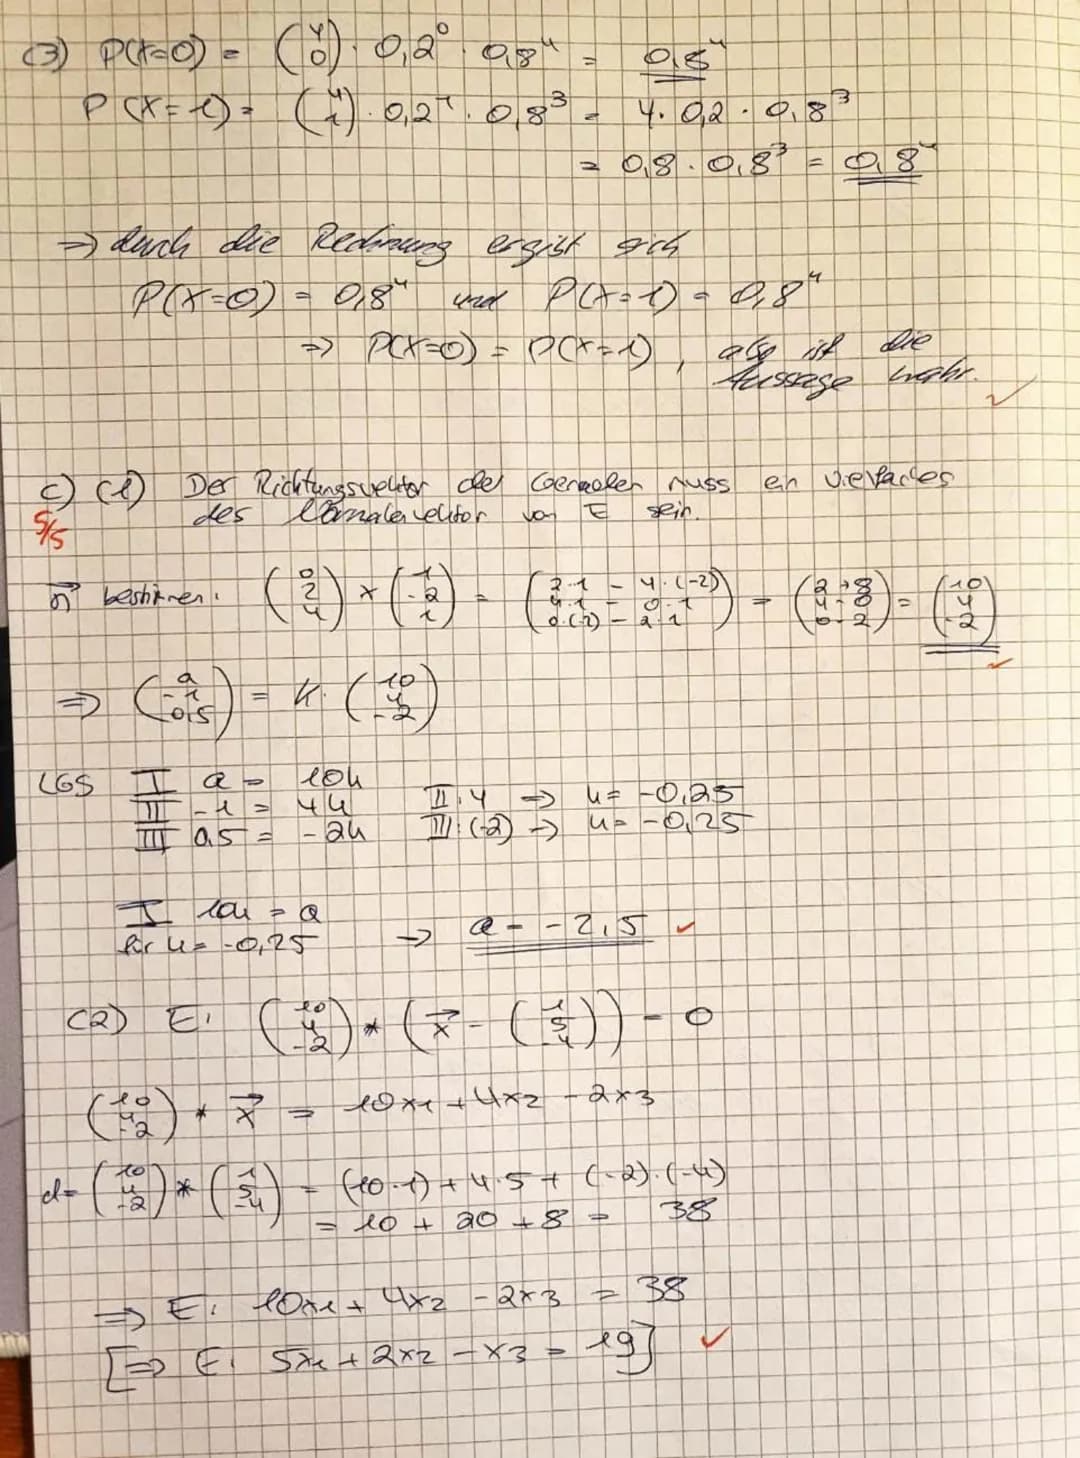 (3) P(X=0) = (4 0) · 0,2⁰ · 0,8⁴ = 0,8⁴
P(X=1) = (4 1) · 0,2¹ · 0,8³ = 4 · 0,2 · 0,8³
= 0,8 · 0,8³ = 0,8⁴
=> durch die Rechnung ergibt sich
P(X=0) = 0,8⁴ und P(X=1) = 0,8⁴
=> P(X=0) = P(X=1), also ist die
Aussage wahr. ✓
c) (1) Der Richtungsvektor der Geraden muss ein Vielfaches
5/5 des Normalenvektor von E sein.
n⃗ bestimmen: (0 2 4) × (1 -2 1) = (2·1 - 4·(-2) 4·1 - 0·1 0·(-2) - 2·1) = (2+8 4-0 0-2) = (10 4 -2) ✓
=> (a -1 0,5) = k · (10 4 -2)
LGS I a = 10k
II -1 = 4k II:4 => k = -0,25
III 0,5 = -2k III:(-2) -> k = -0,25
I 10k = a
für k = -0,25 -> a = -2,5 ✓
(2) E: (10 4 -2) * (x⃗ - (1 5 -4)) = 0
(10 4 -2) * x⃗ = 10x1 + 4x2 - 2x3
d = (10 4 -2) * (1 5 -4) = (10·1) + 4·5 + (-2)·(-4)
= 10 + 20 + 8 = 38
=> E: 10x1 + 4x2 - 2x3 = 38
[=> E: 5x1 + 2x2 - x3 = 19] ✓